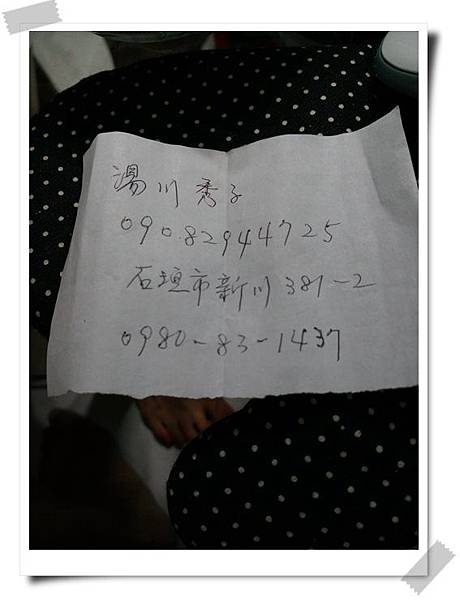 湯川秀子
090.82944725
石垣市新川381-2
0980-83-1437